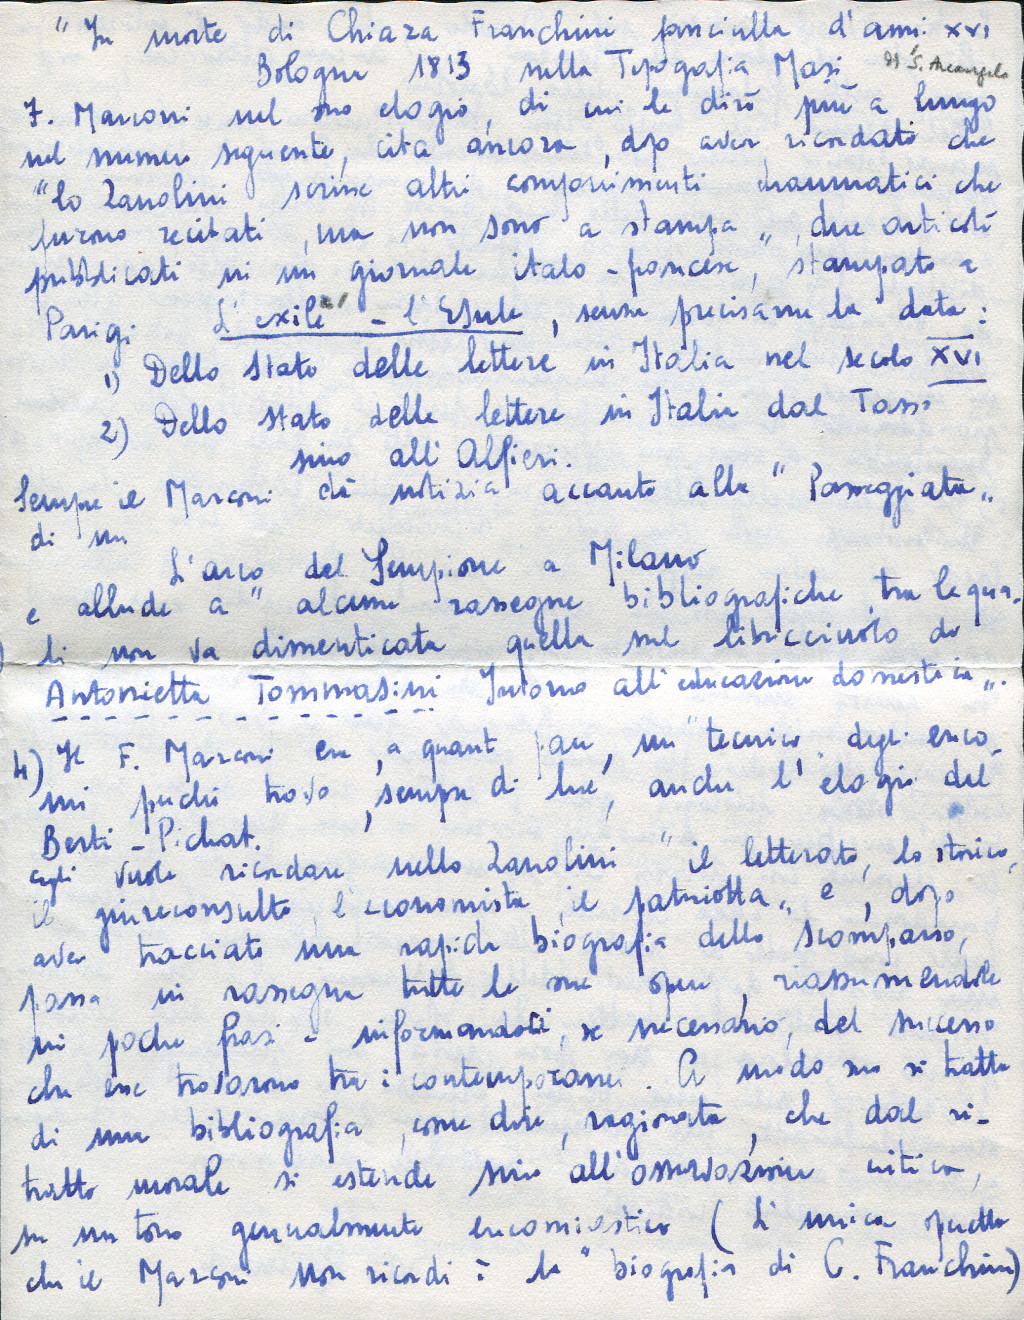 "In morte di Chiara Franchini fanciulla d'anni XVI
Bologna 1813 nella Tipografia Masi di S. Arcangelo
F. Marconi nel suo elogio, di cui le dirò più a lungo
nel numero seguente, cita ancora, dopo aver ricordato che
"lo Zanolini scrisse altri componimenti drammatici che
furono recitati, ma non sono a stampa", due articoli
pubblicati in un giornale italo-francese, stampato a
Parigi L'exilé - l'Esule, senza precisarne la data:
1) Dello stato delle lettere in Italia nel secolo XVI
2) Dello stato delle lettere in Italia dal Tasso
sino all'Alfieri.
Sempre il Marconi dà notizia accanto alla "Passeggiata"
di un
L'arco del Sempione a Milano
e allude a "alcune rassegne bibliografiche, tra le qua-
li non va dimenticata quella sul libricciuolo di
Antonietta Tommasini Intorno all'educazione domestica".
4) Il F. Marconi era, a quant pare, un "tecnico" degli enco-
mi perché trovo, sempre di lui, anche l'elogio del
Berti-Pichat.
Egli vuole ricordare nello Zanolini "il letterato, lo storico,
il giureconsulto, l'economista, il patriotta" e, dopo
aver tracciato una rapida biografia dello scomparso,
passa in rassegna tutte le sue opere, riassumendole
in poche frasi - informandoci, se necessario, del successo
che esse trovarono tra i contemporanei. A modo suo si tratta
di una bibliografia, come dire, ragionata, che dal ri-
tratto morale si estende sino all'osservazione critica,
su un tono generalmente encomiastico (L'unica operetta
che il Marconi non ricordi è la "biografia di C. Franchini)